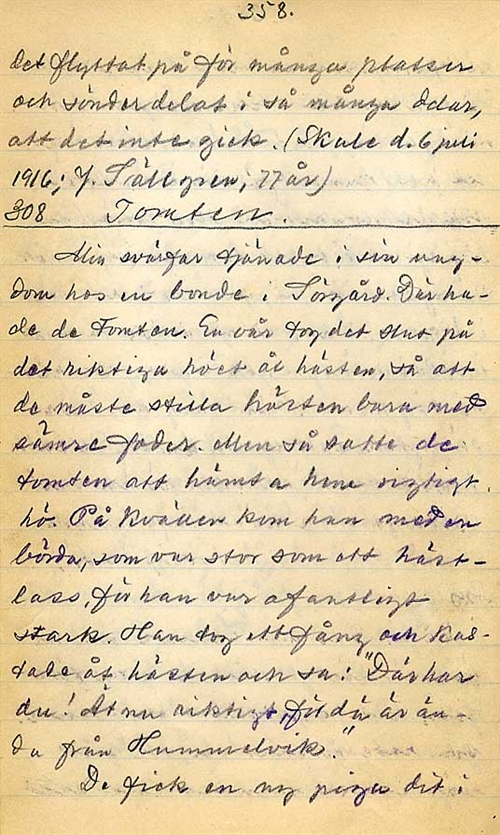 358.
det flyttat på för många platser
och sönderdelat i så många delar,
att det inte gick. (Skule d. 6 juli
1916; J. Sällgren, 77 år)
308 Tomten.
Min svärfar tjänade i sin ung-
dom hos en bonde i Sörgård. Där ha-
de de tomten. En vår tog det slut på
det riktiga höet åt hästen, så att
de måste stilla hästen bara med
sämre foder. Men så satte de
tomten att hämta hene rigtigt
hö. På kvällen kom han med en
börda, som var stor som ett häst-
lass, för han var ofantligt
stark. Han tog ett fång och kas-
tade åt hästen och sa: "Där har
du! Ät nu riktigt, för då är än-
da från Hummelvik."
De fick en ny piga dit i